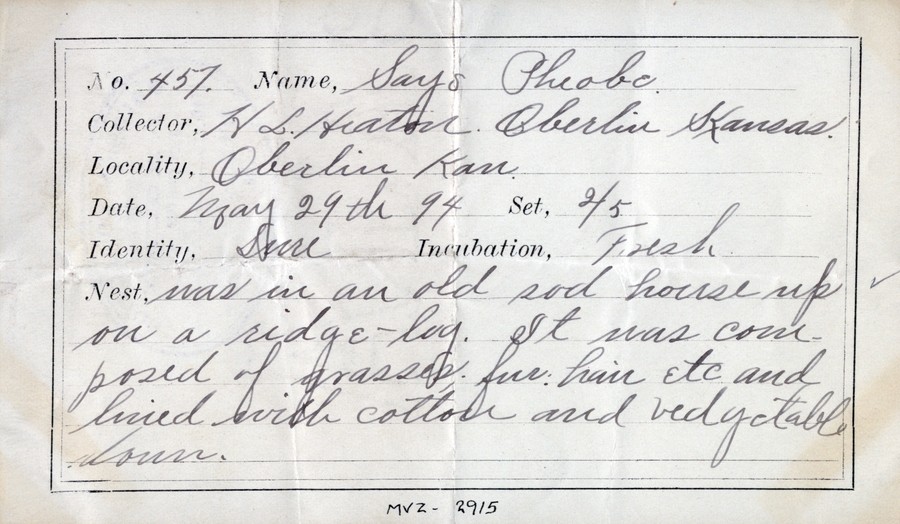 No. 457. Name, Says Pheobe.
Collector, H L. Heaton. Oberlin Kansas.
Locality, Oberlin Kan.
Date, May 29th 94 Set, 2/5
Identity, Sure Incubation, Fresh
Nest, was in an old sod house up
on a ridge-log. It was com-
posed of grasses. fur. hair etc and
lined with cotton and vedgetable
down.
MVZ- 2915